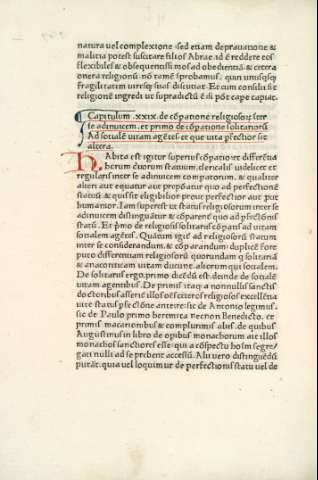 natura uel complexione sed etiam deprauatione &
malitia potest suscitare filios Abrae. id ē reddere eos
flexibiles & obsequentissimos ad obedientiā & cetera
onera religionis. nō tamē īprobamus. quin unusq̄sq;
fragilitatem uiresq; suas discutiat. Et cum consilii se
religionē ingredi ut supradictū ē si pōt cape capiat.
Capitulum .xxix. de cōpatione religiosoꝝ iter
se adinuicem. et primo de cōpatione solitarioꝝ
Ad sotialē uitam agētes. et que uita pfectior sit
altera.
Habita est igitur superius cōpatio et differētia
uerum duorum statuum. clericalis uidelicet et
regularis inter se adinuicem comparatorum. & qualiter
alteri aut equatur aut propōatur quo ad perfectionē
status. & quis sit eligibilior proue perfectior aut put
humanior. Iam superest ut status religiosorum inter se
adinuicem distinguātur & cōparent quo ad pfectionis
statū. Et pmo de religiosis solitariis cōpatis ad uitam
sotialem agētes. Quātum igit ad religiosorū statum
inter se considerandum. & cōparandum. duplicē fore
puto differentiam religiosorū quorundam .q. solitariā
& anacoriticam uitam ducunt. aliorum qui sotialem.
De solitariis ergo. primo dicēdū est. deinde de sotiale
uitam agentibus. De primis itaq; a nonnullis sanctis
doctoribus asserit illos pfectiores religiosos excellētia
uite status pfectione anteire. sic de Antonio legimus.
sic de Paulo primo heremita necnon Benedicto. et
primis macarionibus & complurimis aliis. de quibus
Augustinus in libro de opibus monachorum ait illos
monachos sanctiores esse. qui a cōspectu hoīm segre/
gati nulli ad se prebent accessū. Alii uero distinguēdū
putāt. quia uel loquimur de perfectionis statu uel de